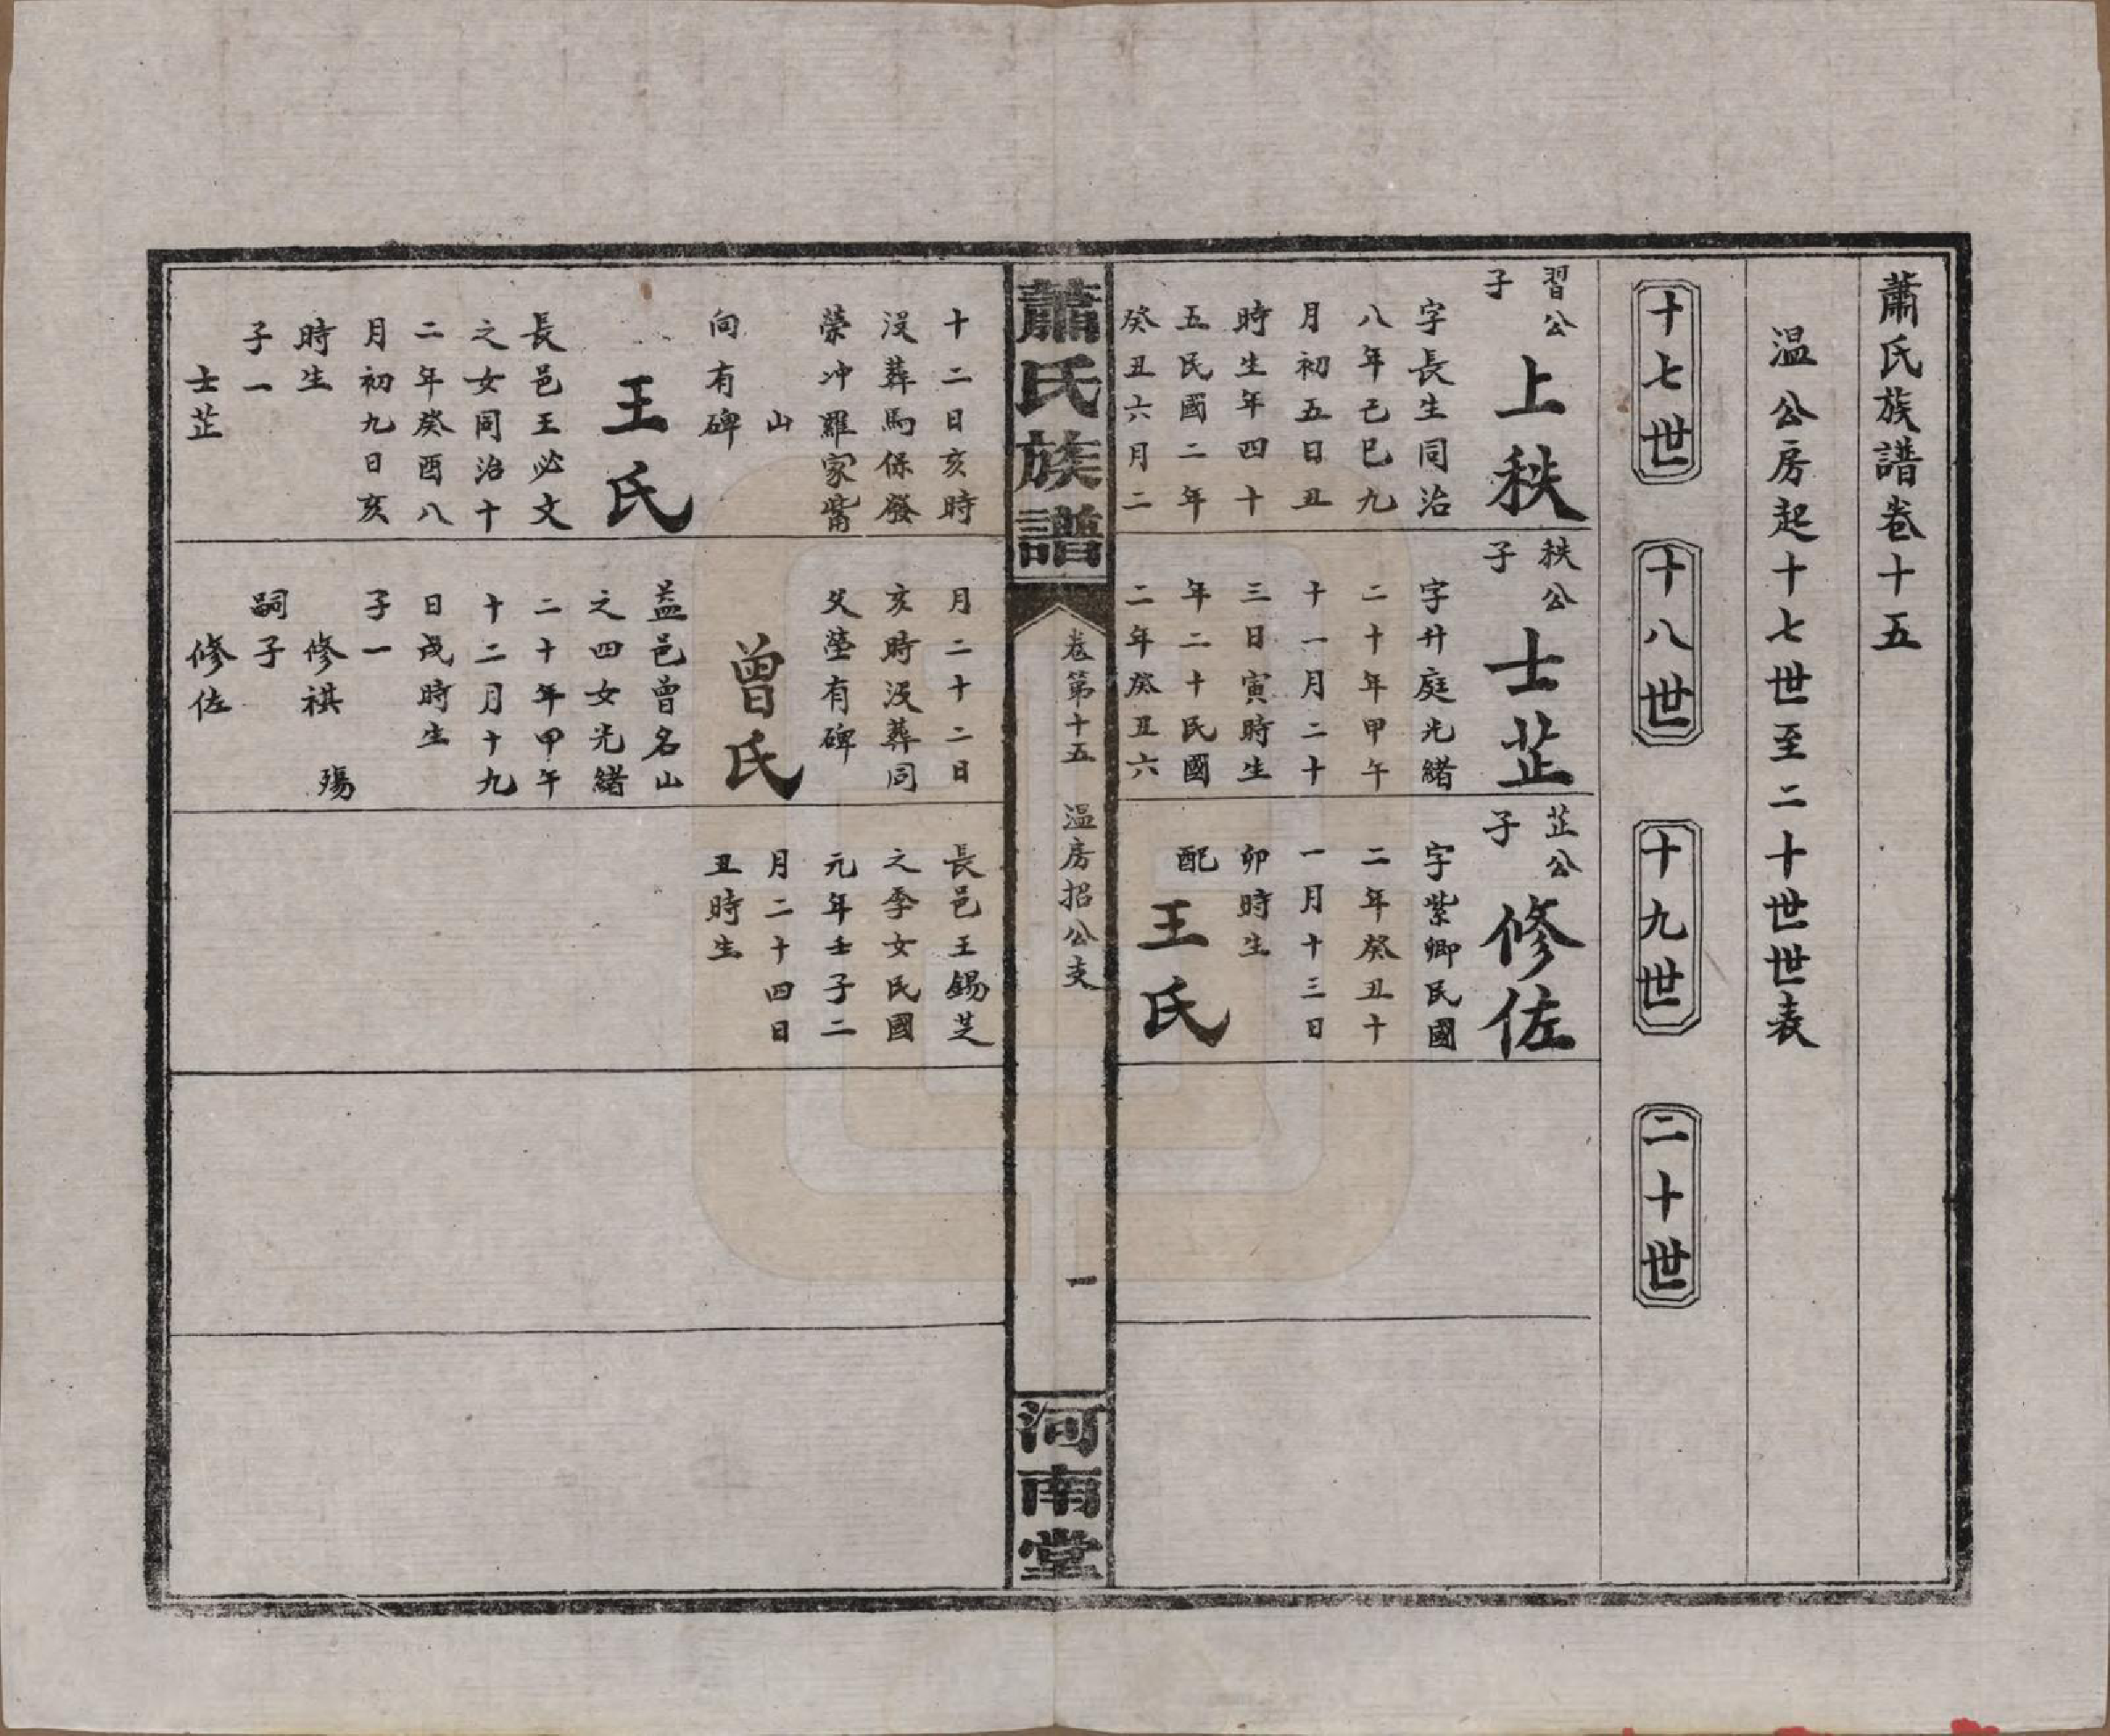 蕭氏族譜卷十五
温公房起十七世至二十世世表
十七世
十八世
十九世
二十世
習公
子
上秩
字長生同治
八年己巳九
月初五日丑
時生年四十
五民國二年
癸丑六月二
秩公
子
士芷
字升庭光緒
二十年甲午
十一月二十
三日寅時生
年二十民國
二年癸丑六
芷公
子
修佐
字紫卿民國
二年癸丑十
一月十三日
卯時生
配
王氏
蕭氏族譜
卷第十五
温房招公支
一
河南堂
十二日亥時
沒葬馬保發
榮冲羅家嘴
山
向有碑
王氏
長邑王必文
之女同治十
二年癸酉八
月初九日亥
時生
子一
士芷
月二十二日
亥時沒葬同
父塋有碑
曾氏
益邑曾名山
之四女光緒
二十年甲午
十二月十九
日戌時生
子一
修祺 殤
嗣子
修佐
長邑王錫芝
之季女民國
元年壬子二
月二十四日
丑時生